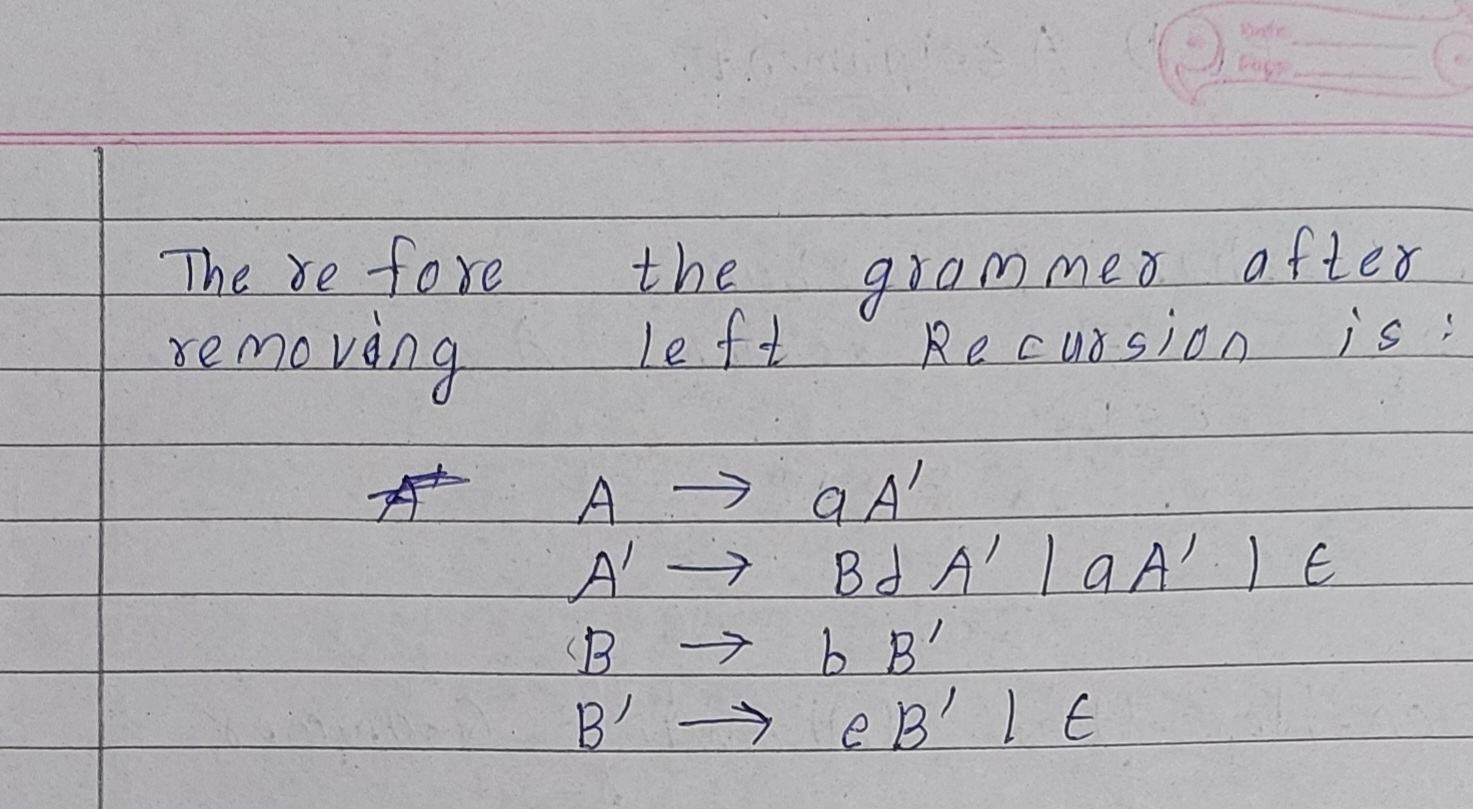 Date
Page
The re fore the grammer after
removing left Recursion is:
A → aA'
A' → Bd A' | aA' | ϵ
B → b B'
B' → eB' | ϵ